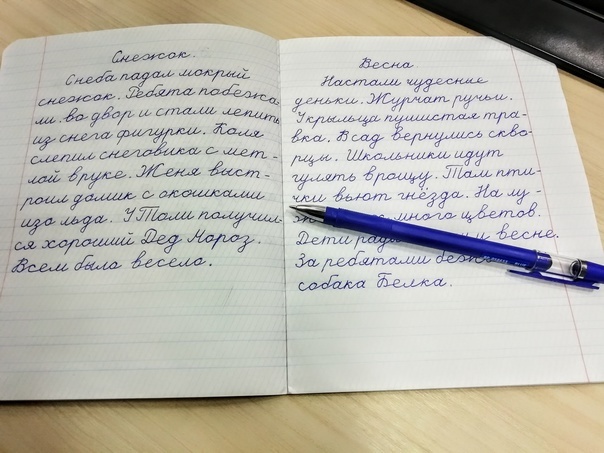 Снежок.
Снеба падал мокрый
снежок. Ребята побежа-
ли во двор и стали лепить
из снега фигурки. Коля
слепил снеговика с мет-
лой вруке. Женя выст-
роил домик с окошками
изо льда. УТоли получил-
ся хороший Дед Мороз.
Всем было весело.
Весна
Настали чудесные
деньки. Журчат ручьи.
Укрыльца пушистая тра-
вка. Всад вернулись скво-
рцы. Школьники идут
гулять врощу. Там пти-
чки вьют гнёзда. На лу-
много цветов.
Дети и весне.
За ребятами
собака Белка.